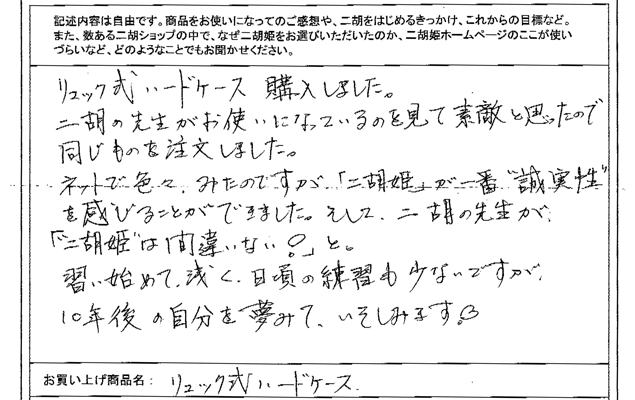 記述内容は自由です。商品をお使いになってのご感想や、二胡をはじめるきっかけ、これからの目標など。
また、数ある二胡ショップの中で、なぜ二胡姫をお選びいただいたのか、二胡姫ホームページのここが使い
づらいなど、どのようなことでもお聞かせください。
リュック式ハードケース 購入しました。
二胡の先生がお使いになっているのを見て素敵と思ったので
同じものを注文しました。
ネットで色々、みたのですが、「二胡姫」が一番"誠実性"
を感じることができました。そして、二胡の先生が、
「"二胡姫"は間違いない!」と。
習い始めて、浅く、日頃の練習も少ないですが、
10年後の自分を夢みて、いそしみます。
お買い上げ商品名: リュック式ハードケース.